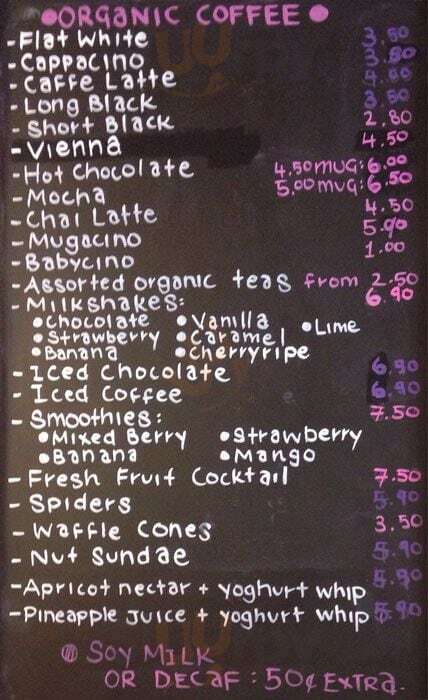 ORGANIC COFFEE
- Flat White 3.50
- Cappacino 3.80
- Caffe Latte 4.00
- Long Black 3.50
- Short Black 2.80
- Vienna 4.50
- Hot Chocolate 4.50 mug: 6.00
- Mocha 5.00 mug: 6.50
- Chai Latte 4.50
- Mugacino 5.90
- Babycino 1.00
- Assorted organic teas from 2.50
- Milkshakes: 6.90
• Chocolate • Vanilla • Lime
• Strawberry • Caramel
• Banana • Cherryripe
- Iced Chocolate 6.90
- Iced Coffee 6.90
- Smoothies: 7.50
• Mixed Berry • Strawberry
• Banana • Mango
- Fresh Fruit Cocktail 7.50
- Spiders 5.90
- Waffle Cones 3.50
- Nut Sundae 5.90
- Apricot nectar + yoghurt whip 5.90
- Pineapple Juice + yoghurt whip 5.90
SOY MILK
OR DECAF: 50¢ EXTRA.